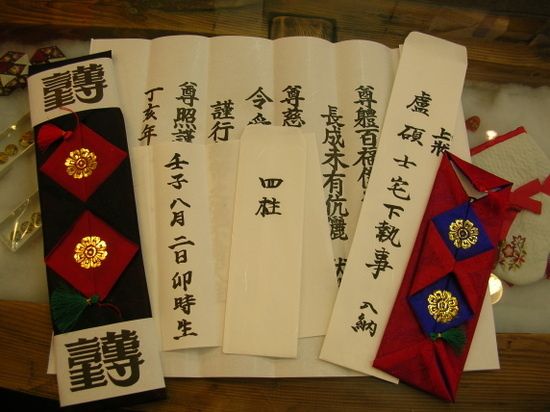 上狀
盧碩士宅下執事 入納
尊體百福
長成未有伉儷
尊慈
令
謹行
尊照
丁亥年
四柱
壬子八月二日卯時生